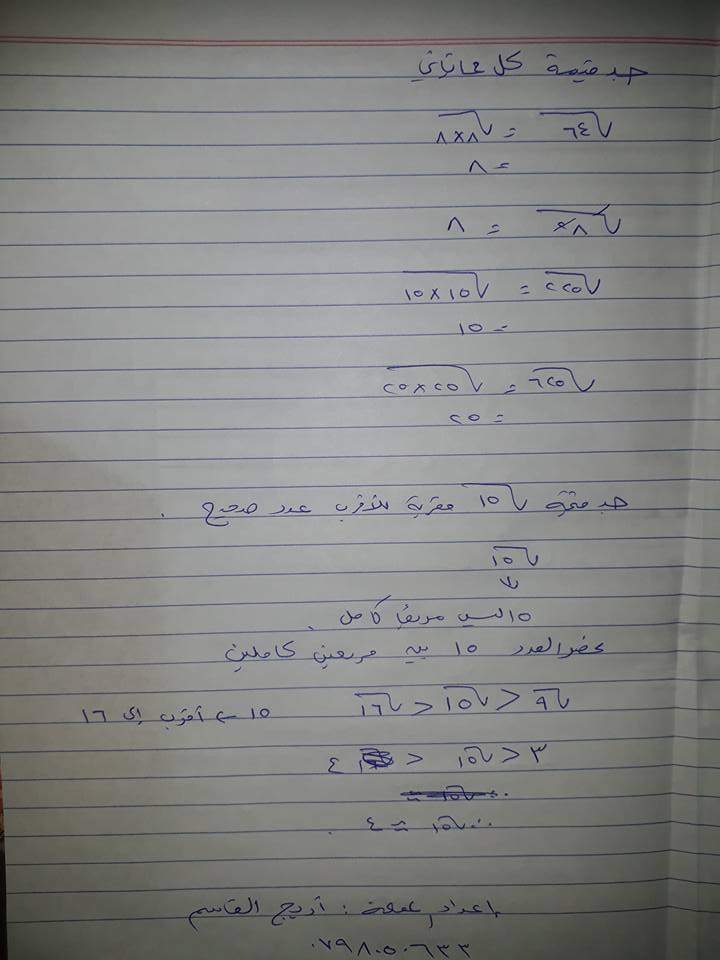 جد قيمة كل مما يأتي
√٦٤ = √٨×٨
= ٨
√٨² = ٨
√٢٢٥ = √١٥×١٥
= ١٥
√٦٢٥ = √٢٥×٢٥
= ٢٥
جد قيمة √١٥ مقربة للأقرب عدد صحيح .
√١٥
↓
١٥ ليس مربعًا كامل .
نحصر العدد ١٥ بين مربعين كاملين
√٩ > √١٥ > √١٦ ١٥ ← أقرب إلى ١٦
٣ > √١٥ > ٤
∴ √١٥ ≈ ٤ .
إعداد المعلمة : أريج القاسم
٠٧٩٨٠٥٠٦٣٣